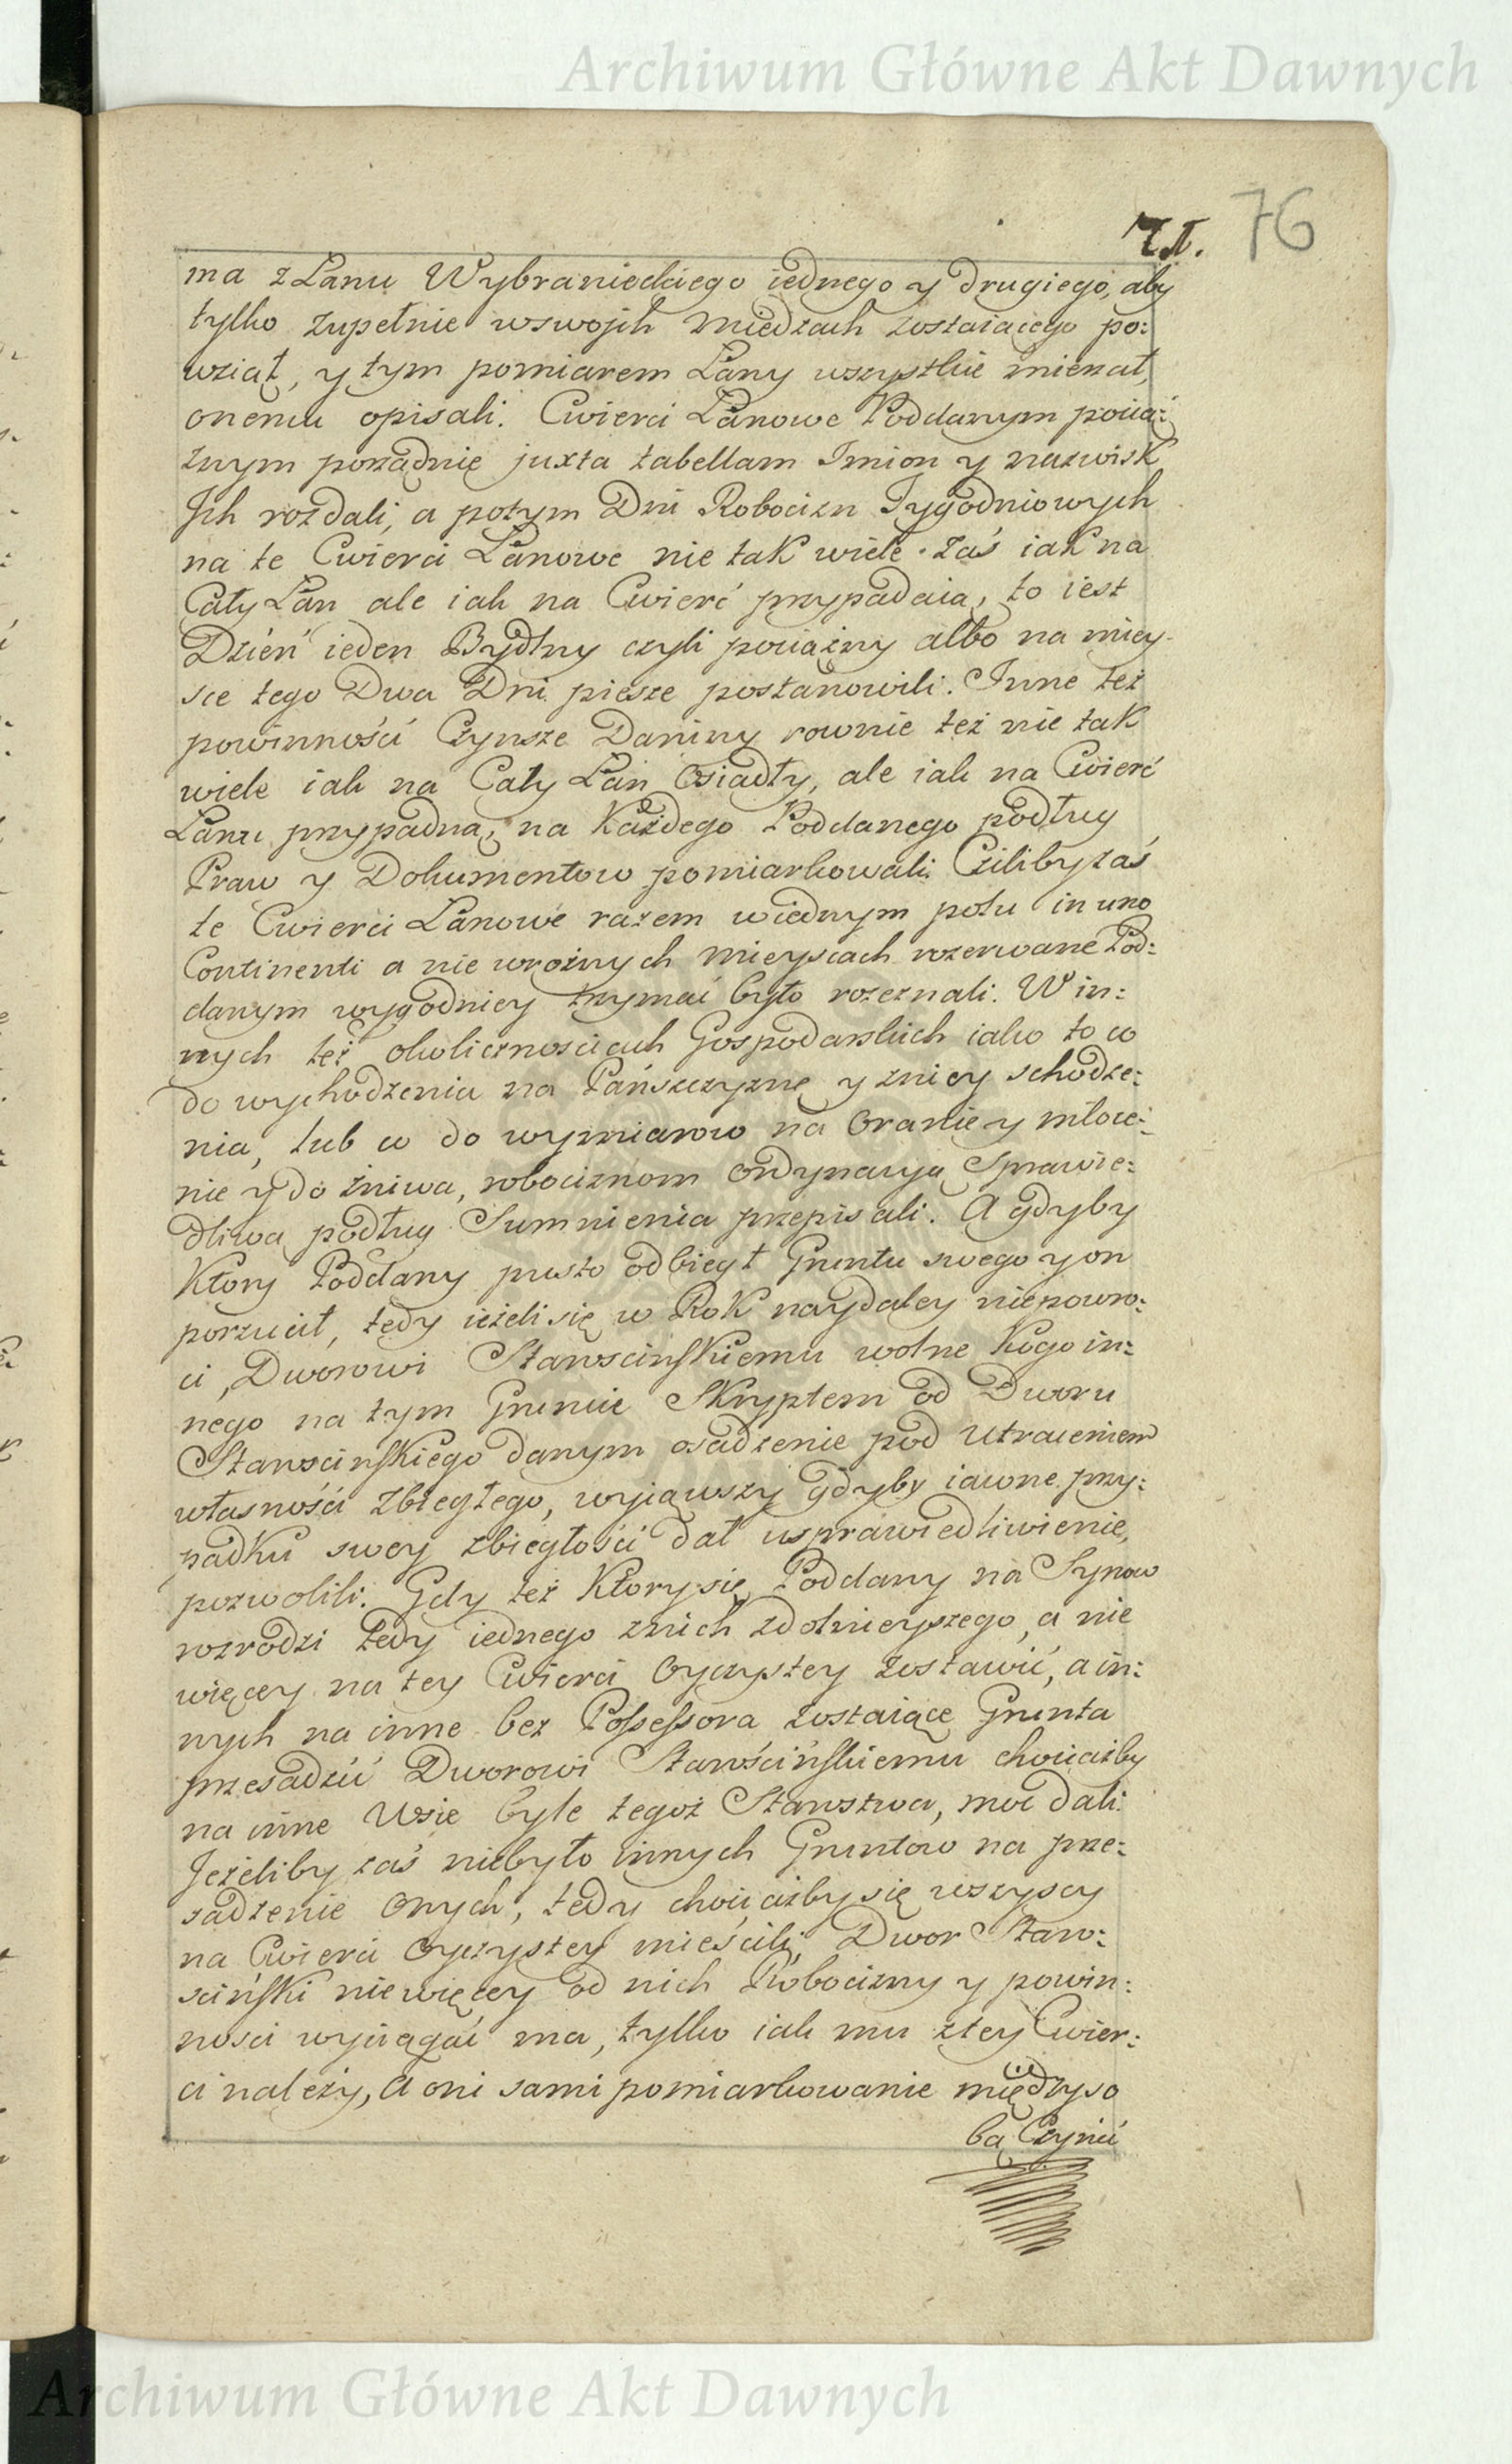 Archiwum Główne Akt Dawnych
76
71.
ma z Łanu Wybranieckiego iednego y drugiego, aby
tylko zupełnie wswojch miedzach zostaiącego po:
wziął, y tym pomiarem Łany wszystkie mierzał,
onemu opisali. Cwierci Łanowe Poddanym pocią:
żnym porządnie juxta tabellam Imion y nazwisk
Jch rozdali, a potym Dni Robocizn Tygodniowych
na te Cwierci Łanowe nie tak wiele zaś iak na
Cały Łan ale iak na Cwierć przypadaią, to iest
Dzień ieden Bydlny czyli pociążny albo na miey-
sce tego Dwa Dni piesze postanowili. Inne też
powinności Czynsze Daniny rownie też nie tak
wiele iak na Cały Łan Osiadły, ale iak na Cwierć
Łanu przypadną, na Każdego Poddanego podług
Praw y Dokumentow pomiarkowali. Cziliby zaś
te Cwierci Łanowe razem wiednym polu in uno
Continenti a nie wrożnych mieyscach rozerwane Pod:
danym wygodniey trzymać było rozeznali. W in:
nych też okolicznosciach Gospodarskich iako to co
do wychodzenia na Pańszczyznę y zniey schodze:
nia, lub co do wymiarow na Oranie y młoce:
nie y do żniwa, robociznom Ordynacyą Sprawie:
dliwą podług Sumnienia przepisali. A gdyby
Ktory Poddany pusto odbiegł Gruntu swego y on
porzucił, tedy ieżeli się w Rok naydaley niepowro:
ci, Dworowi Starościnskiemu wolne Kogo in:
nego na tym Gruncie Skryptem od Dworu
Starościnskiego danym osadzenie pod utraceniem
własności Zbiegłego, wyiąwszy gdyby iawne przy:
padku swey zbiegłości dał usprawiedliwienie,
pozwolili. Gdy też Ktory się Poddany na Synow
rozrodzi tedy iednego znich zdolnieyszego, a nie
więcey na tey Cwierci Oyczystey zostawić, a in:
nych na inne bez Possessora zostaiące Grunta
przesadzić Dworowi Starościńskiemu chociażby
na inne Wsie byle tegoż Starostwa, moc dali.
Jeżeliby zaś niebyło innych Gruntow na prze:
sadzenie Onych, tedy chociażby się wszyscy
na Cwierci Oyczystey mieścili, Dwor Staro:
sciński niewięcey od nich Robocizny y powin:
ności wyciągać ma, tylko iak mu ztey Cwier:
ci należy, A oni sami pomiarkowanie między so
bą Czynić
Archiwum Główne Akt Dawnych